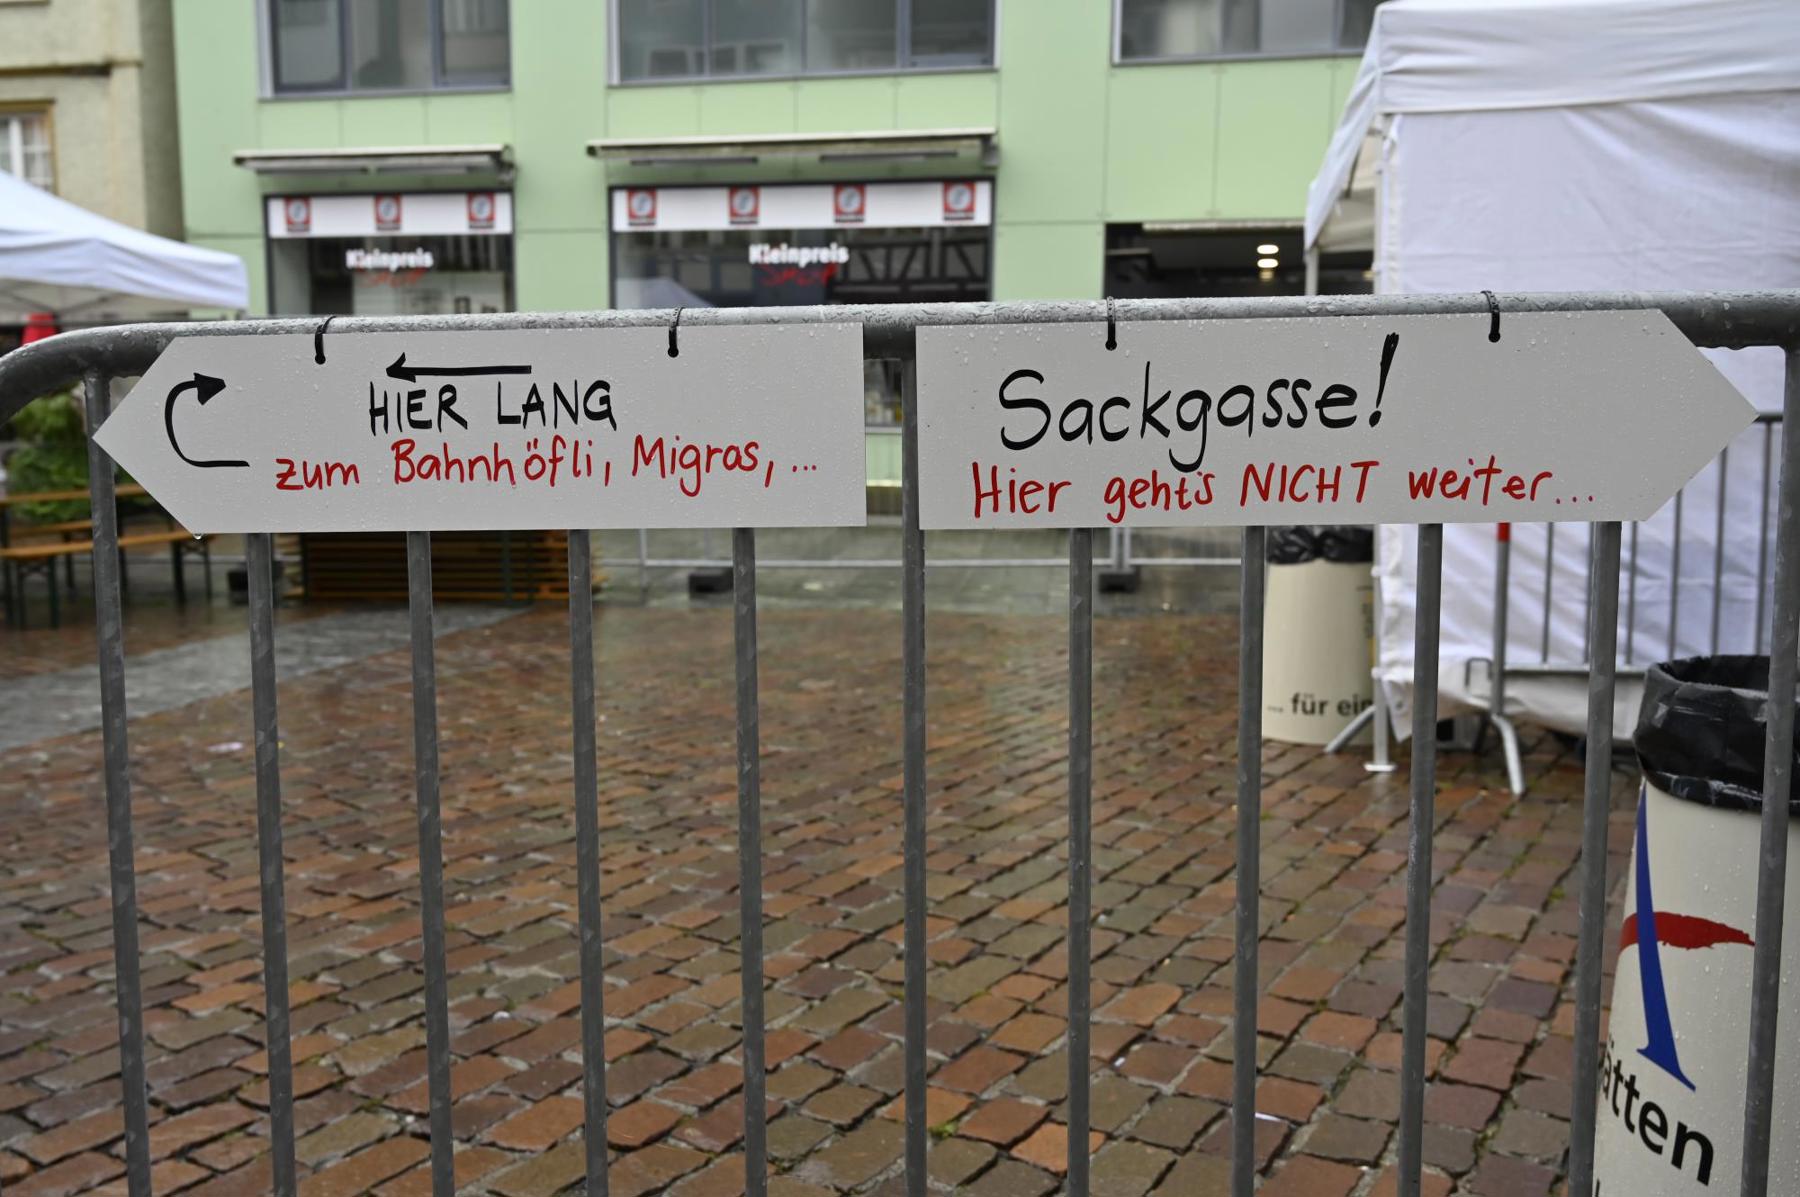 Kleinpreis
SHOP
Kleinpreis
SHOP
HIER LANG
zum Bahnhöfli, Migras, ...
Sackgasse!
Hier geht's NICHT weiter...
... für ein
ätten